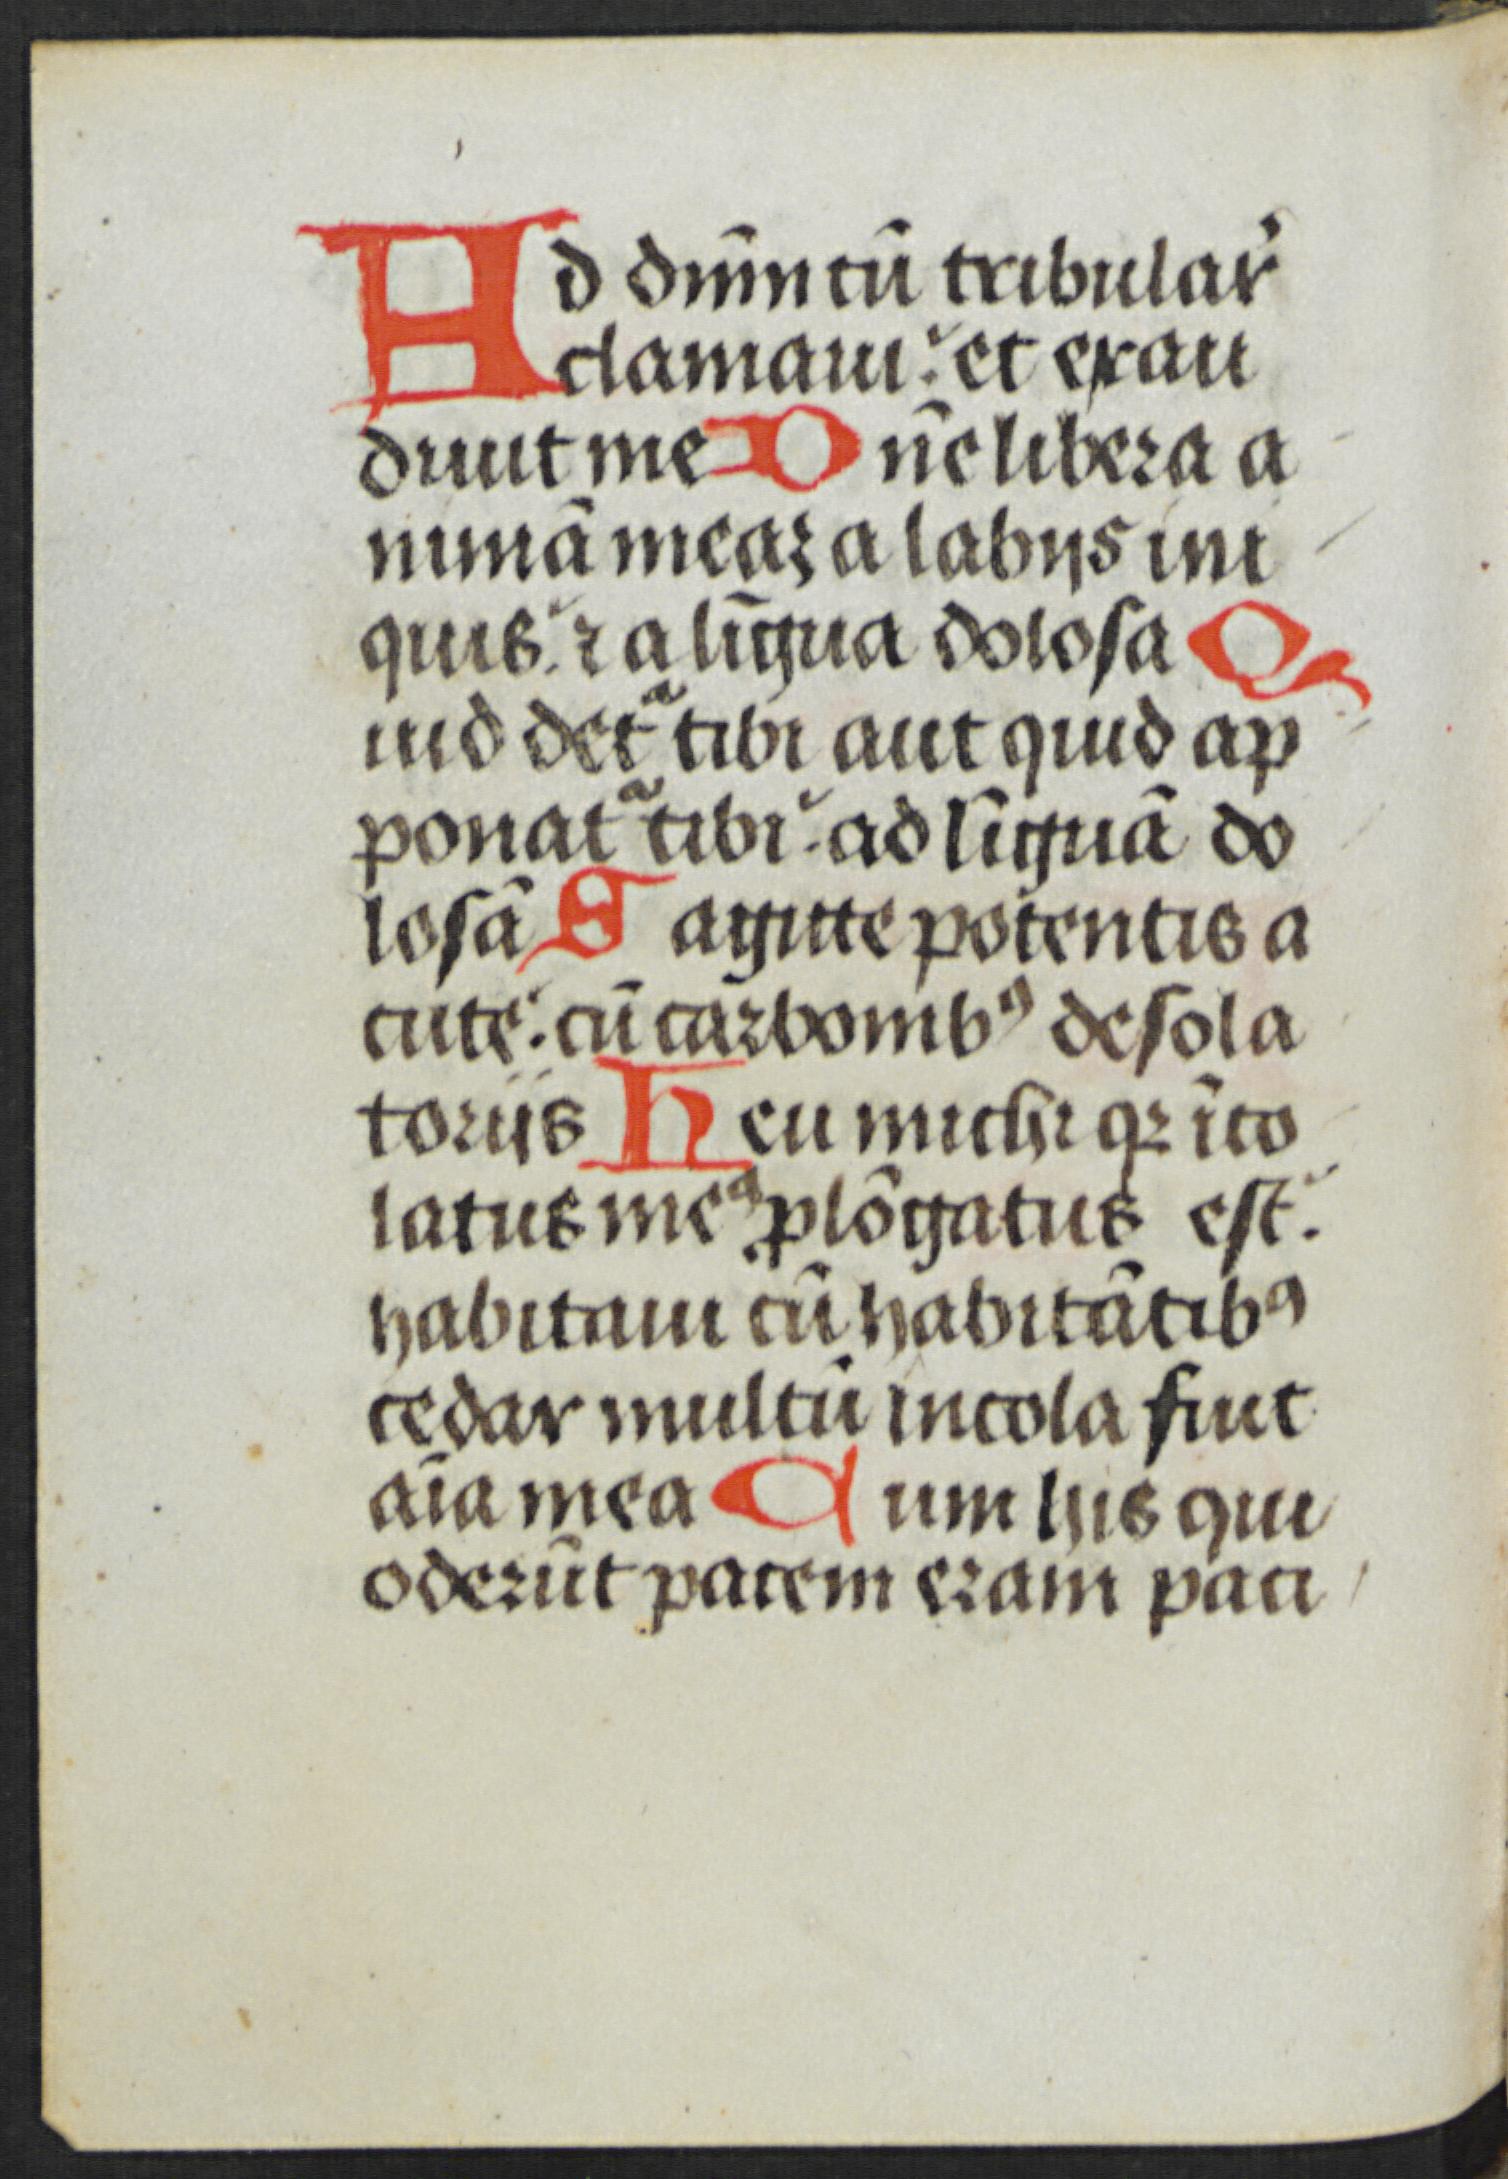 Ad dñm cũ tribular̃
clamaui: et exau
diuit me Dñe libera a
nimã meaꝫ a labijs ini
quis: ⁊ a lĩgua dolosa Q
uid detᷓ tibi aut quid ap
ponatᷓ tibi: ad lĩguã do
losã Sagitte potentis a
cute: cũ carbonibꝰ desola
torijs Heu michi qꝛ ĩco
latus meꝰ ꝓlõgatus est:
habitaui cũ habitãtibꝰ
cedar multũ incola fuit
aĩa mea Cum hijs qui
oderũt pacem eram paci